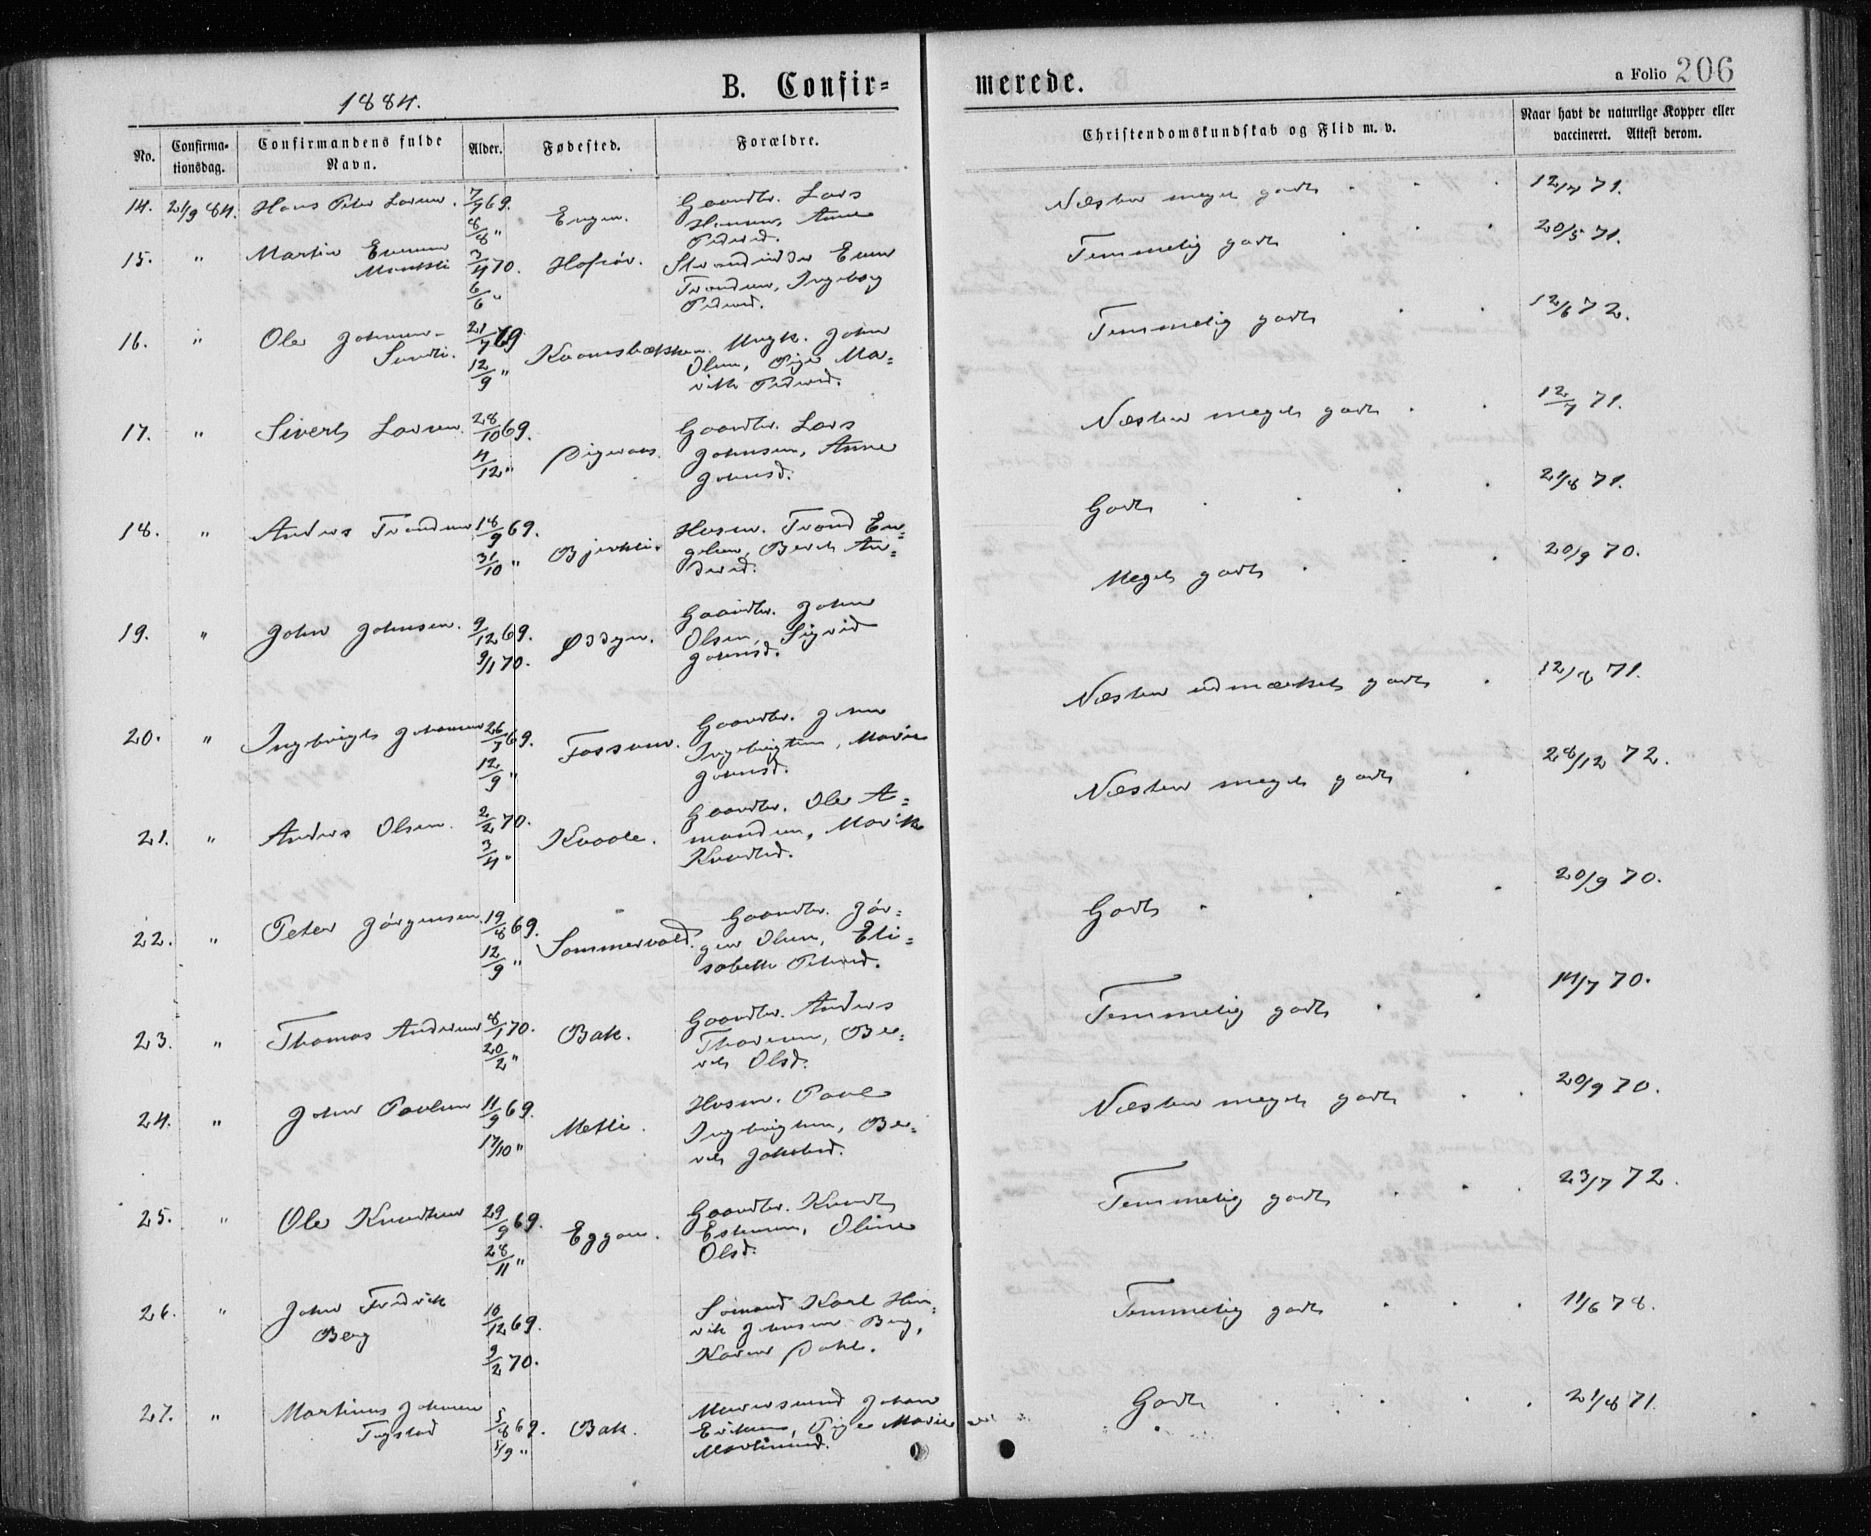 1884.
B. Confir-
merede.
a Folio 206
No.
Confirma-
tionsdag.
Confirmandens fulde
Navn.
Alder.
Fødested.
Forældre.
Christendomskundskab og Flid m. v.
Naar havt de naturlige Kopper eller
vaccineret. Attest derom.
14. 21/9 84. Hans Peter Larsen. 7/7 69. 8/8 " Engen. Gaardbr. Lars
Hansen, Anne
Pedersd.
Næsten meget godt 12/7 71.
15. " Martin Evensen
Moutli 3/4 70. 6/6 " Hofsør. Strandsidder Even
Trondsen, Ingeborg
Pedersd.
Temmelig godt 20/5 71.
16. " Ole Johnsen
Sundli. 21/7 69 12/9 " Kvamsbækken. Ungk. John
Olsen, Pige Ma-
rith Pedersd.
Temmelig godt 12/6 72.
17. " Sivert Larsen. 28/10 69. 4/12 " Gaardbr. Lars
Johnsen, Anne
Johnsd.
Næsten meget godt 12/7 71.
18. " Anders Trondsen 18/9 69. 31/10 " Bjerkli. Husm. Trond En-
gelsen, Berit An-
dersd.
Godt 21/8 71.
19. " John Johnsen. 9/12 69. 9/1 70. Ødegn. Gaardbr. John
Olsen, Sigrid
Johnsd.
Meget godt 20/9 70.
20. " Ingebrigt Johnsen 26/7 69. 12/9 " Fossum. Gaardbr. John
Ingebrigtsen, Marie
Johnsd.
Næsten udmærket godt 12/8 71.
21. " Anders Olsen. 2/2 70. 3/4 " Kvaale. Gaardbr. Ole A-
mundsen, Marith
Knudtsd.
Næsten meget godt 28/12 72.
22. " Peter Jørgensen 19/8 69. 12/9 " Sommervold. Gaardbr. Jør-
gen Olsen, Eli-
sabeth Petersd.
Godt 20/9 70.
23. " Thomas Andersen 8/1 70. 20/2 " Bak. Gaardbr. Anders
Thorsen, Be-
rit Olsd.
Temmelig godt 14/7 70.
24. " John Paulsen 11/9 69. 17/10 " Metli. Husm. Paul
Ingebrigtsen, Be-
rit Jakobsd.
Næsten meget godt 20/9 70.
25. " Ole Knudtsen 29/9 69. 28/11 " Eggan. Gaardbr. Knudt
Estensen, Oline
Olsd.
Temmelig godt 23/7 72.
26. " John Fredrik
Berg 10/12 69. 9/2 70. Sømand Karl Hen-
rik Johnsen Berg,
Karen Dahl.
Temmelig godt 11/6 78.
27. " Martinus Johnsen
Fugstad 5/8 69. 5/9 " Bak. Murersvend Johan
Eriksen, Pige Marie
Martinusd.
Godt 21/8 71.